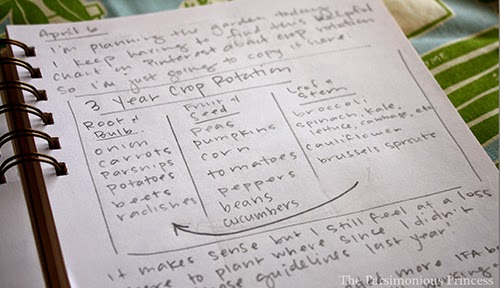 April 6
I'm planning the garden today.
I keep having to find this
chart on Pinterest about crop rotation
So I'm just going to copy it here!
3 Year Crop Rotation
Root &
Bulb
onion
carrots
parsnips
potatoes
beets
radishes
Fruit &
Seed
peas
pumpkins
corn
tomatoes
peppers
beans
cucumbers
Leaf &
Stem
broccoli,
spinach, kale,
lettuce, cabbage, etc
cauliflower
brussels sprouts
It makes sense but I still feel at a loss
to plant where since I didn't
guidelines last year!
more IFA
The Parsimonious Princess